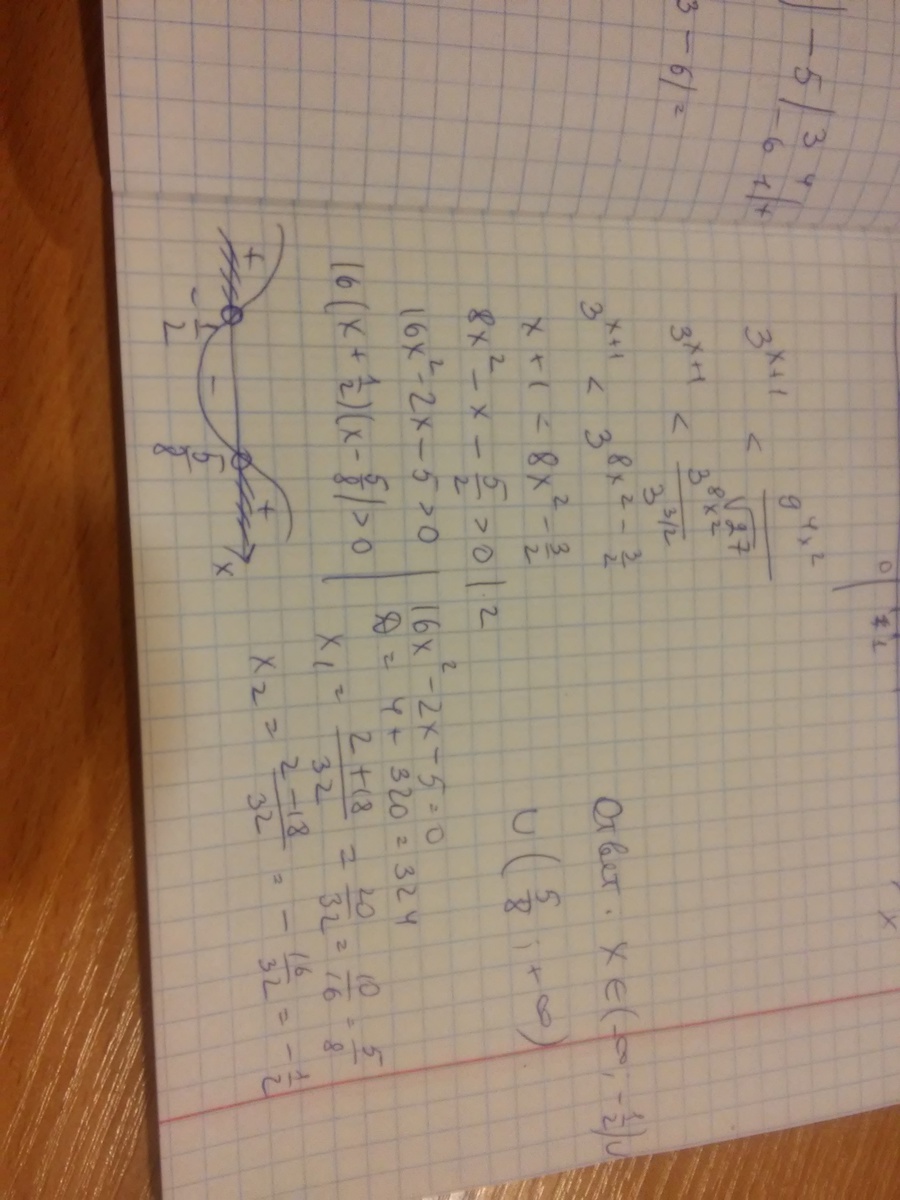 ) -5 | 3 4
-6 1 | +
3 - 6) =
0 | 1 1
x
3^{x+1} < \frac{9^{4x^2}}{\sqrt{27}}
3^{x+1} < \frac{3^{8x^2}}{3^{3/2}}
3^{x+1} < 3^{8x^2 - \frac{3}{2}}
x + 1 < 8x^2 - \frac{3}{2}
8x^2 - x - \frac{5}{2} > 0 | · 2
16x^2 - 2x - 5 > 0
16 (x + \frac{1}{2})(x - \frac{5}{8}) > 0
+ - +
-\frac{1}{2} \frac{5}{8} x
16x^2 - 2x - 5 = 0
D = 4 + 320 = 324
x_1 = \frac{2+18}{32} = \frac{20}{32} = \frac{10}{16} = \frac{5}{8}
x_2 = \frac{2-18}{32} = -\frac{16}{32} = -\frac{1}{2}
Ответ. x ∈ (-∞; -\frac{1}{2}) ∪
∪ (\frac{5}{8}; +∞)